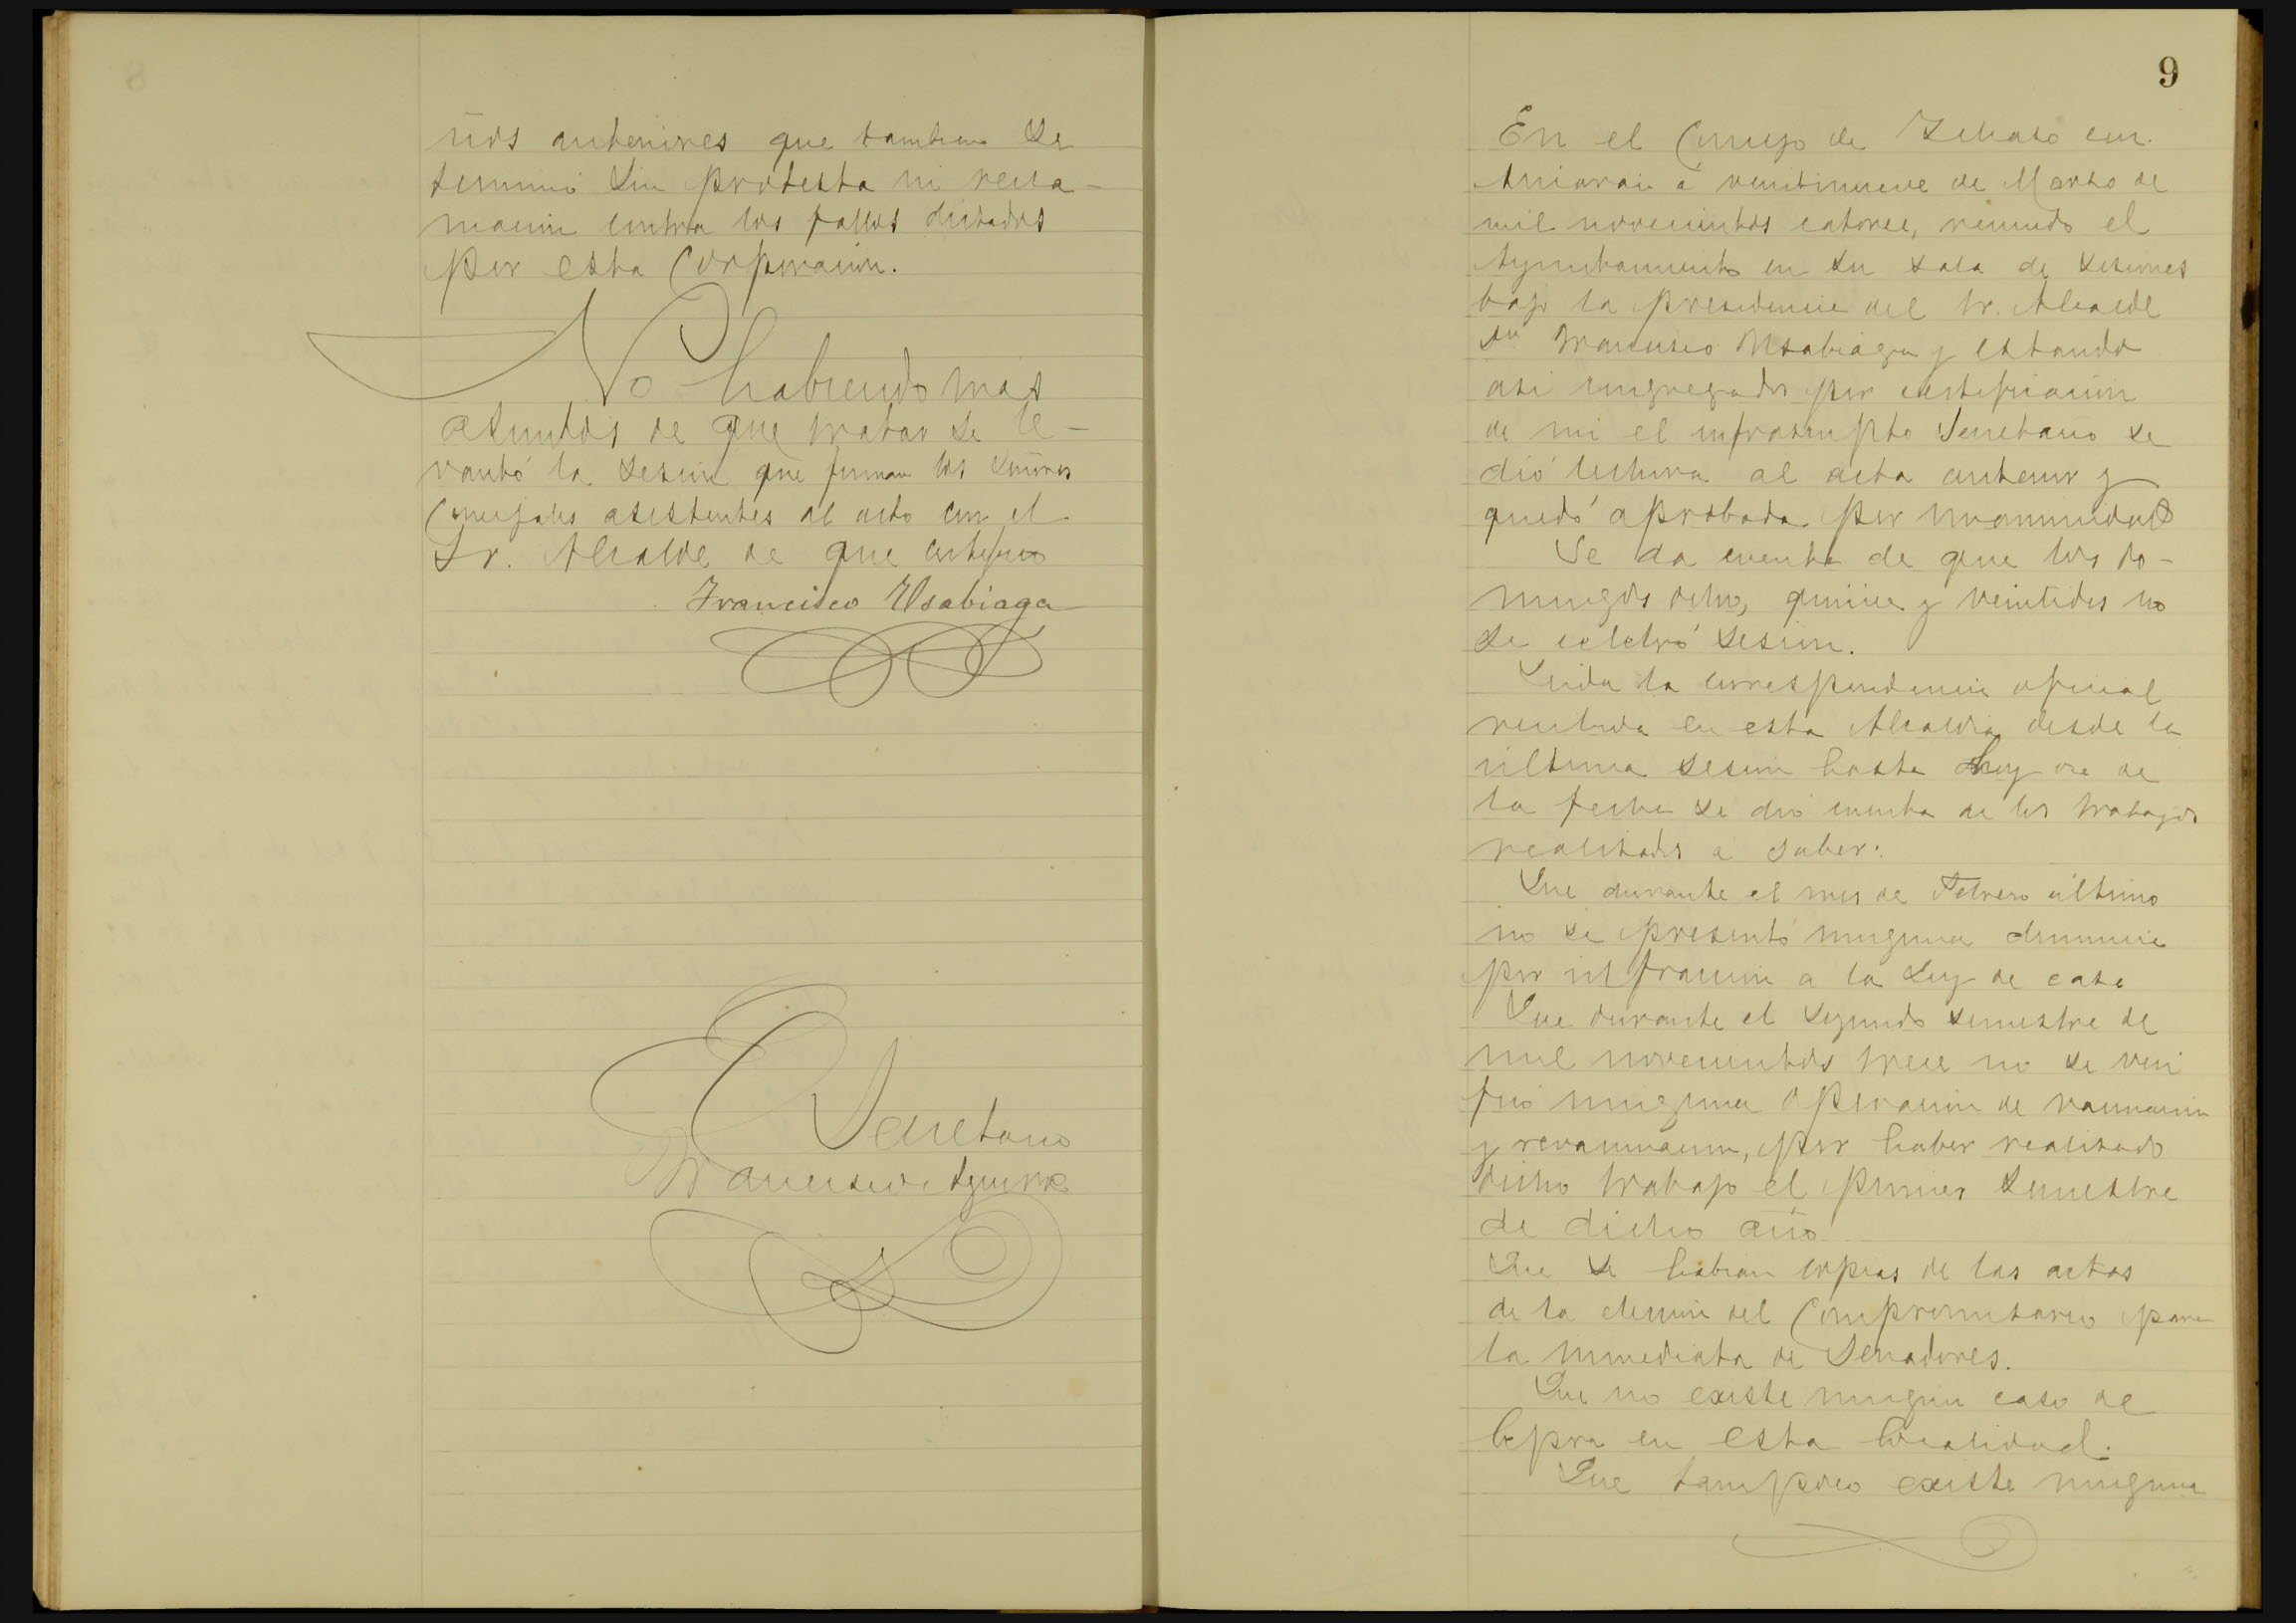 ños anteriores que tambien se
terminó sin protesta ni recla-
macion contra los fallos dictados
por esta Corporacion.
No habiendo mas
asuntos de que tratar se le-
vantó la sesion que firman los señores
Concejales asistentes al acto con el
Sr. Alcalde de que certifico
Francisco Usabiaga
El Secretario
Francisco Aguirre
9
En el Concejo de
á veintinueve de Marzo de
mil novecientos catorce, reunido el
Ayuntamiento en su sala de sesiones
bajo la presidencia del Sr. Alcalde
Dn Francisco Usabiaga y estando
asi congregados por certificacion
de mi el infrascripto Secretario se
dió lectura al acta anterior y
quedó aprobada por unanimidad
Se da cuenta de que los do-
mingos ocho, quince y veintidos no
se celebró sesion.
Leida la correspondencia oficial
recibida en esta Alcaldia desde la
ultima sesion hasta hoy dia de
la fecha se dió cuenta de los trabajos
realizados a saber:
Que durante el mes de Febrero último
no se presentó ninguna denuncia
por infraccion a la Ley de caza
Que durante el segundo semestre de
mil novecientos trece no se veri
ficó ninguna operacion de vacunacion
y revacunacion, por haber realizado
dicho trabajo el primer semestre
de dicho año
Que se habian copias de las actas
de la eleccion del Compromisario para
la inmediata de Senadores.
Que no existe ningun caso de
lepra en esta localidad.
Que tampoco existe ninguna